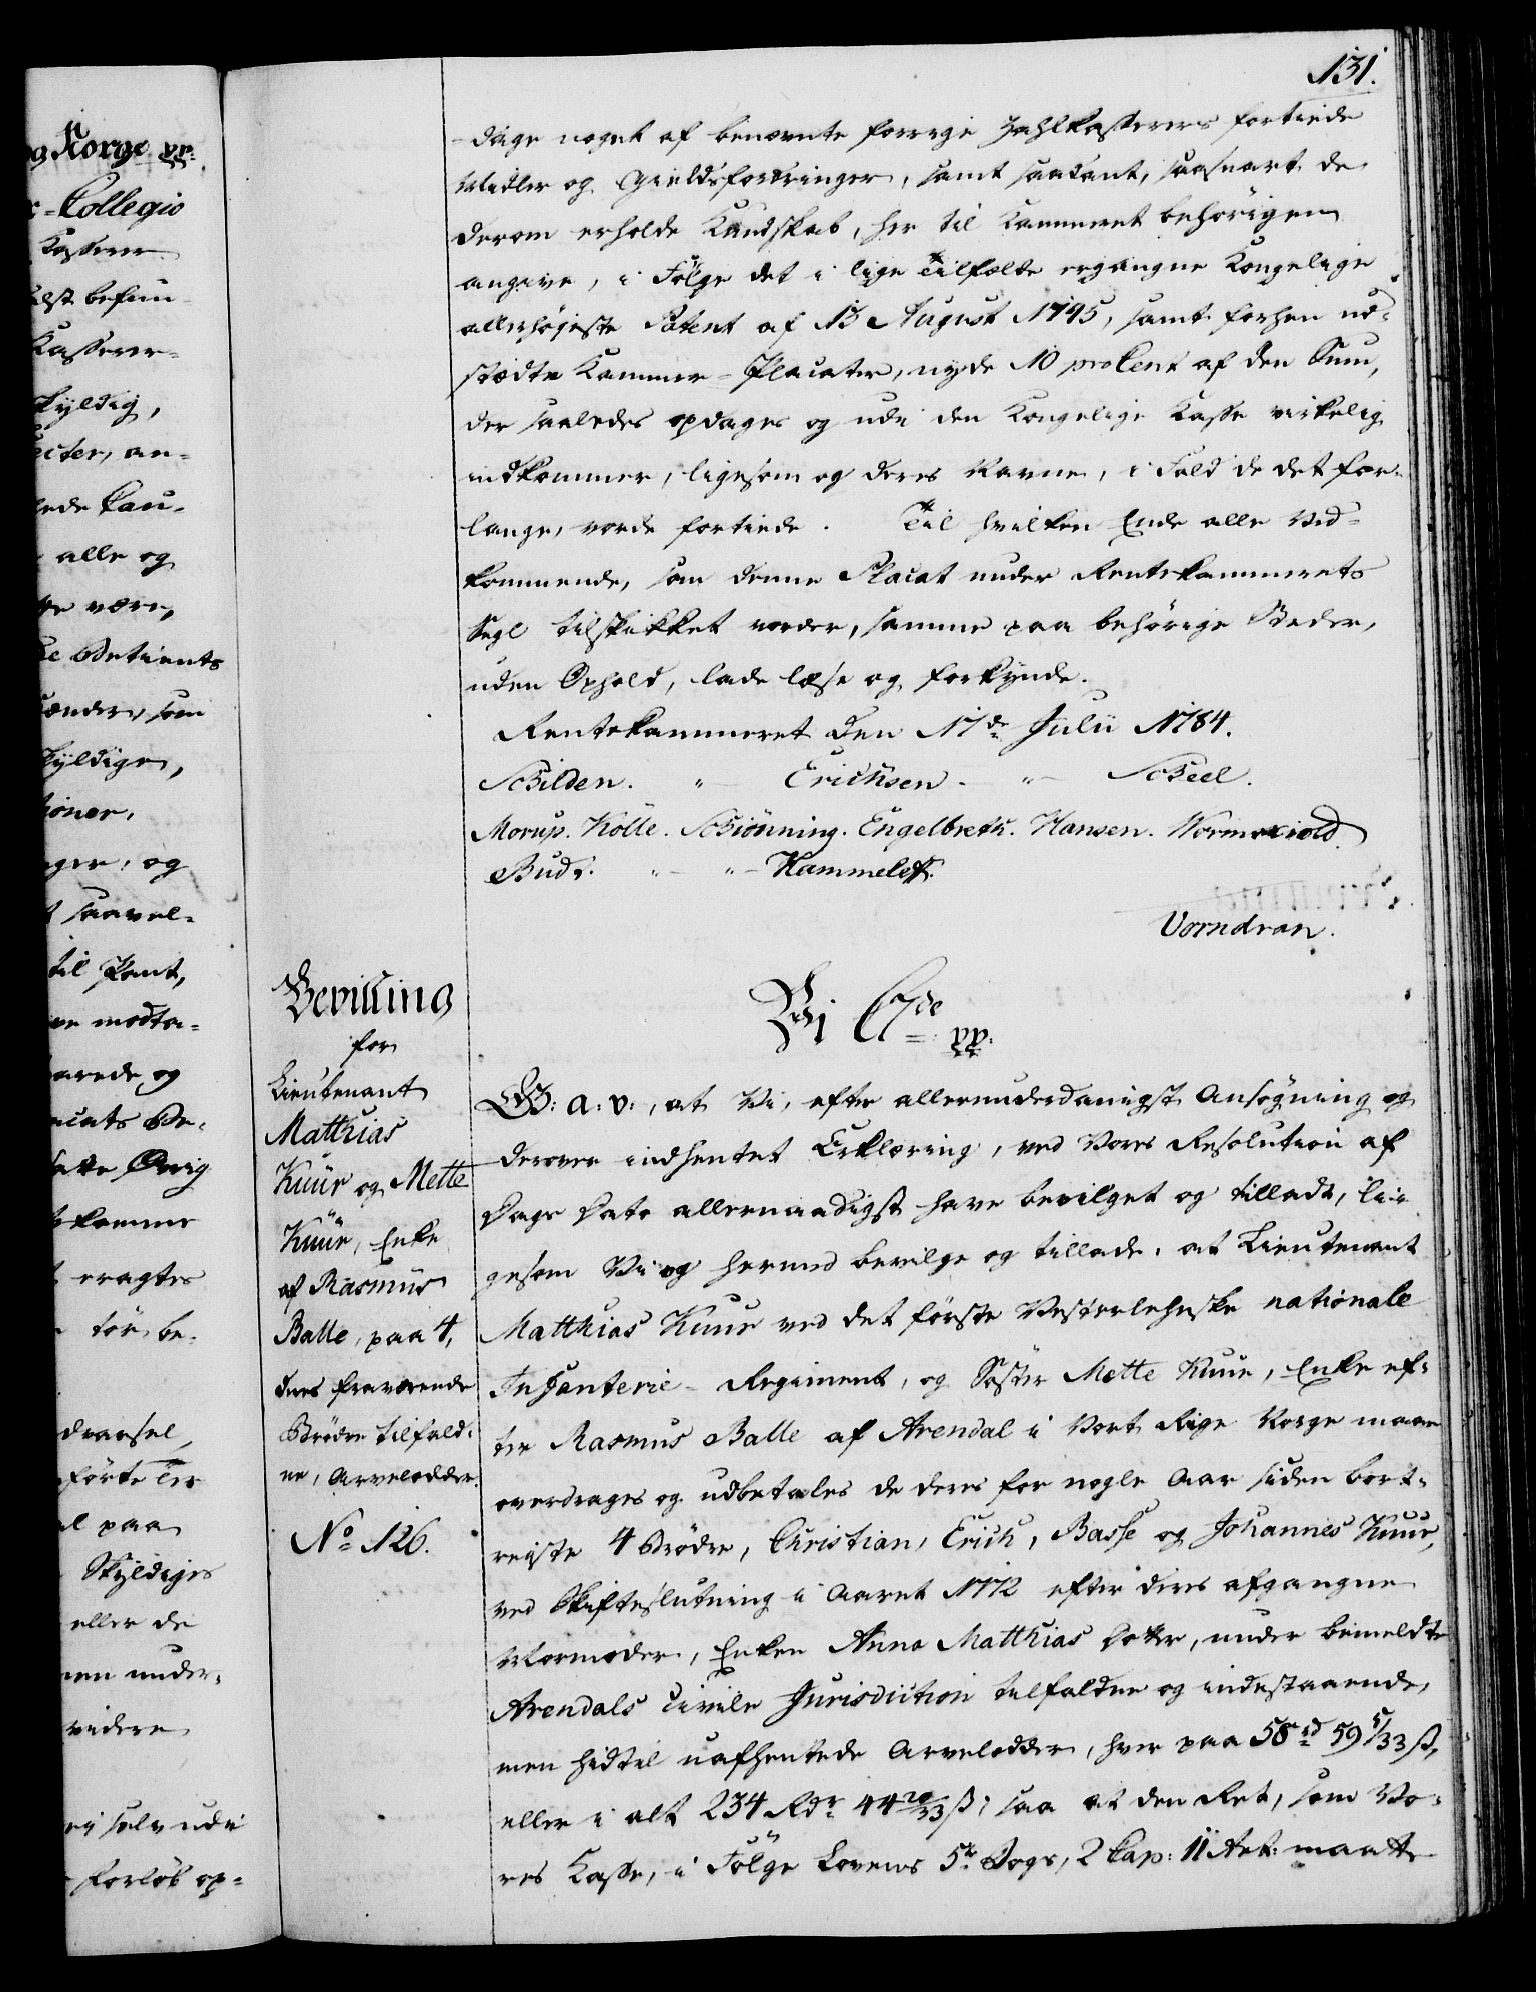 131.
-dage noget af benævnte forrige Zahlkasserers fortiede
Midler og Gieldsfordringer, samt saadant, saasnart de
derom erholde Kundskab, her til Kammeret behörigen
angive, i Fölge det i lige Tilfælde ergangne Kongelige
allerhöjeste Patent af 13 August 1745, samt forhen ud-
stædte Kammer-Placater, nyde 10 pro Cent af den Sum,
der saaledes opdages og udi den Kongelige Kasse virkelig
indkommer, ligesom og deres Navne, i Fald de det for-
lange, vorde fortiede. Til hvilken Ende alle Ved-
kommende, som denne Placat under Rentekammerets
Segl tilskikket vorder, samme paa behörige Steder,
uden Ophold, lade læse og forkynde.
Rentekammeret den 17de Julii 1784.
Schilden. " Erichsen. " Scheel.
Morup. Kölle. Schiönning. Engelbreth. Hansen. Wormskiold.
Budz. " " Hammeleff.
Vorndran.
Bevilling
for
Lieutenant
Matthias
Kuur og Mette
Kuur, Enke
af Rasmus
Balle, paa 4,
deres fraværende
Brödre tilfald-
ne, Arvelodder.
No. 126.
Vi C7de pp.
G: a: v:, at Vi, efter allerunderdanigst Ansögning og
derover indhentet Erklæring, ved Vores Resolution af
Dags Dato allernaadigst have bevilget og tilladt, li-
gesom Vi og hermed bevilge og tillade, at Lieutenant
Matthias Kuur ved det förste Vesterlehnske nationale
Infanterie-Regiment, og Söster Mette Kuur, Enke ef-
ter Rasmus Balle af Arendal i Vort Rige Norge maae
overdrages og udbetales de deres for nogle Aar siden bort-
reiste 4 Brödre, Christian, Erich, Basse og Johannes Kuur,
ved Skifteslutning i Aaret 1772 efter deres afgangne
Mormoder, Enken Anna Matthias Dotter, under bemeldte
Arendals Civile Jurisdiction tilfaldne og indestaaende,
men hidtil uafhentede Arvelodder, hver paa 58 rd 59 5/33 ß,
eller i alt 234 Rdr 44 20/33 ß; saa at den Ret, som Vo-
res Kasse, i Fölge Lovens 5te Bogs, 2 Cap: 11 Art: maatte